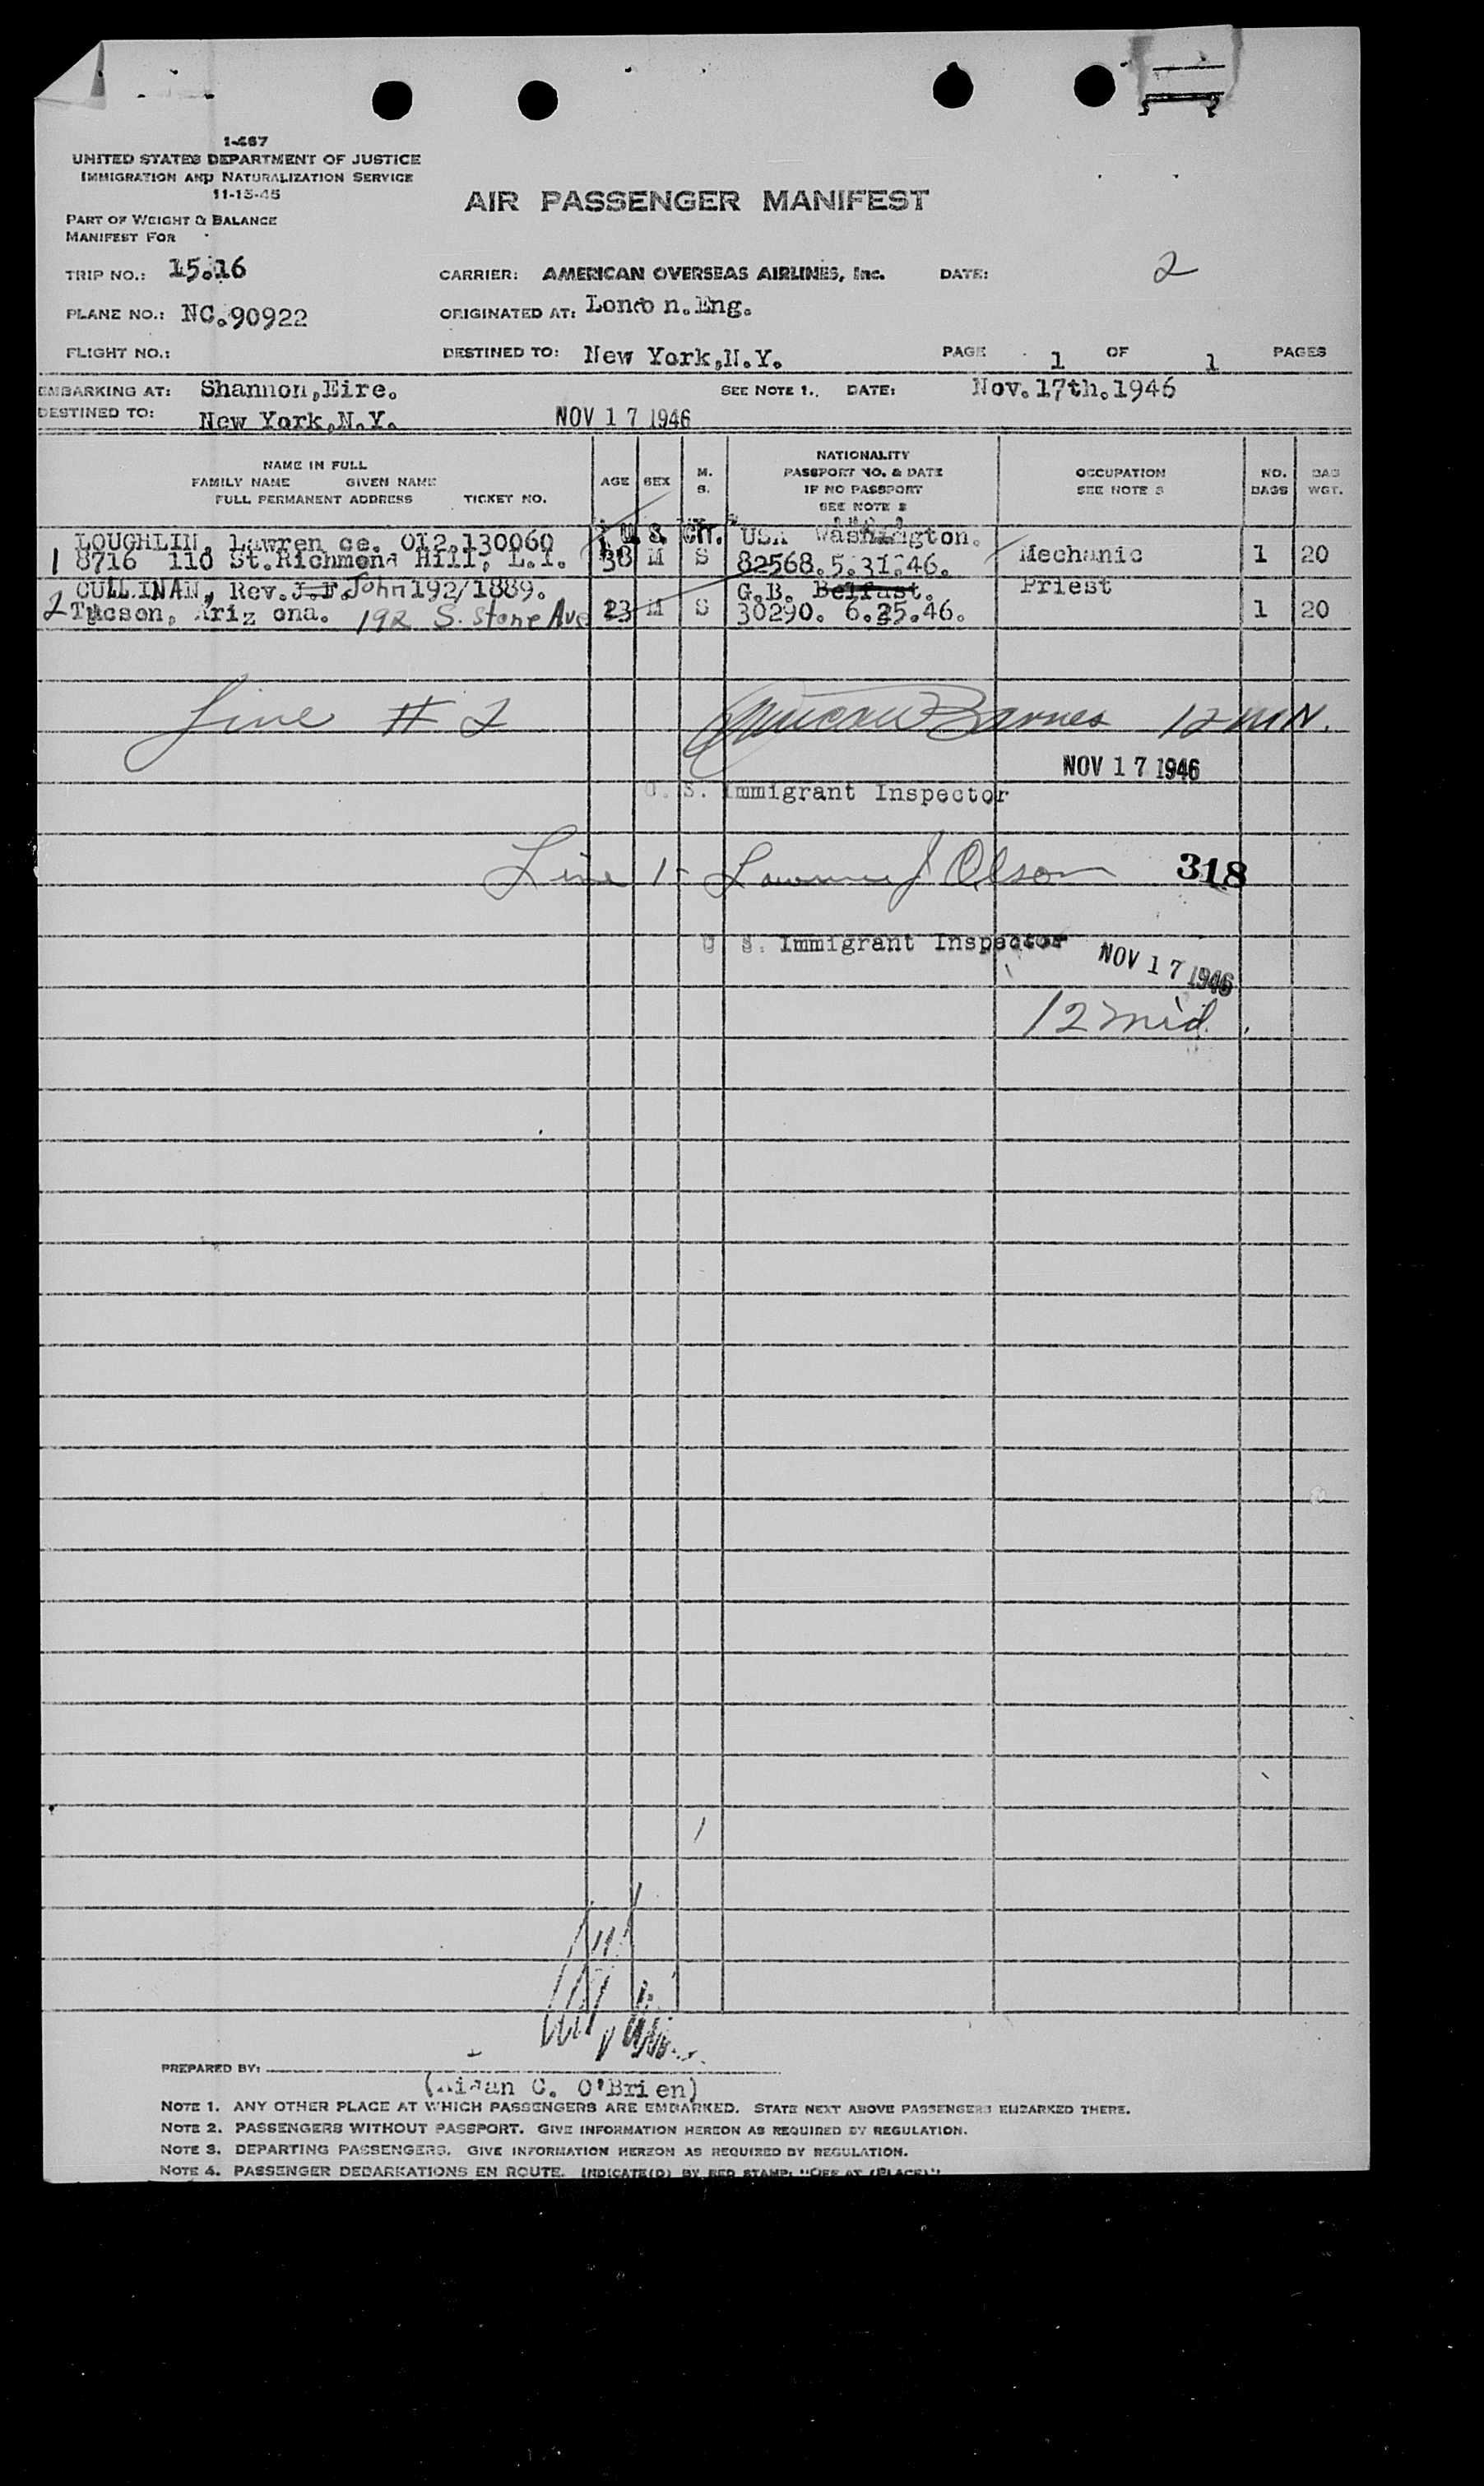 1-467
UNITED STATES DEPARTMENT OF JUSTICE
IMMIGRATION AND NATURALIZATION SERVICE
11-15-45
AIR PASSENGER MANIFEST
PART OF WEIGHT & BALANCE
MANIFEST FOR
TRIP NO.: 15.16 CARRIER: AMERICAN OVERSEAS AIRLINES, Inc. DATE: 2
PLANE NO.: NC.90922 ORIGINATED AT: London.Eng.
FLIGHT NO.: DESTINED TO: New York,N.Y. PAGE 1 OF 1 PAGES
EMBARKING AT: Shannon,Eire. SEE NOTE 1., DATE: Nov.17th.1946
DESTINED TO: New York,N.Y. NOV 17 1946
NAME IN FULL
FAMILY NAME GIVEN NAME
FULL PERMANENT ADDRESS TICKET NO.
AGE SEX M. S.
NATIONALITY
PASSPORT NO. & DATE
IF NO PASSPORT
SEE NOTE 2
OCCUPATION
SEE NOTE 3
NO. BAGS
BAG WGT.
LOUGHLIN, Lawren ce. OI2.130060 U. S. CIT. USA Washington.
1 8716 110 St.Richmond Hill, L.I. 38 M S 82568.5.31.46. Mechanic 1 20
CULLINAN, Rev. J.F. John 192/1889. G.B. Belfast. Priest
2 Tucson, Ariz ona. 192 S. Stone Ave 23 M S 30290. 6.25.46. 1 20
Line # 2 Barnes 12 MN.
NOV 17 1946
U. S. Immigrant Inspector
Line 1- Lawrence J Olson 318
U. S. Immigrant Inspector NOV 17 1946
12 mid.
PREPARED BY:
(Aidan C. O'Bri en)
NOTE 1. ANY OTHER PLACE AT WHICH PASSENGERS ARE EMBARKED. STATE NEXT ABOVE PASSENGERS EMBARKED THERE.
NOTE 2. PASSENGERS WITHOUT PASSPORT. GIVE INFORMATION HEREON AS REQUIRED BY REGULATION.
NOTE 3. DEPARTING PASSENGERS. GIVE INFORMATION HEREON AS REQUIRED BY REGULATION.
NOTE 4. PASSENGER DEBARKATIONS EN ROUTE. INDICATE(D) BY RED STAMP: "OFF AT (PLACE)"